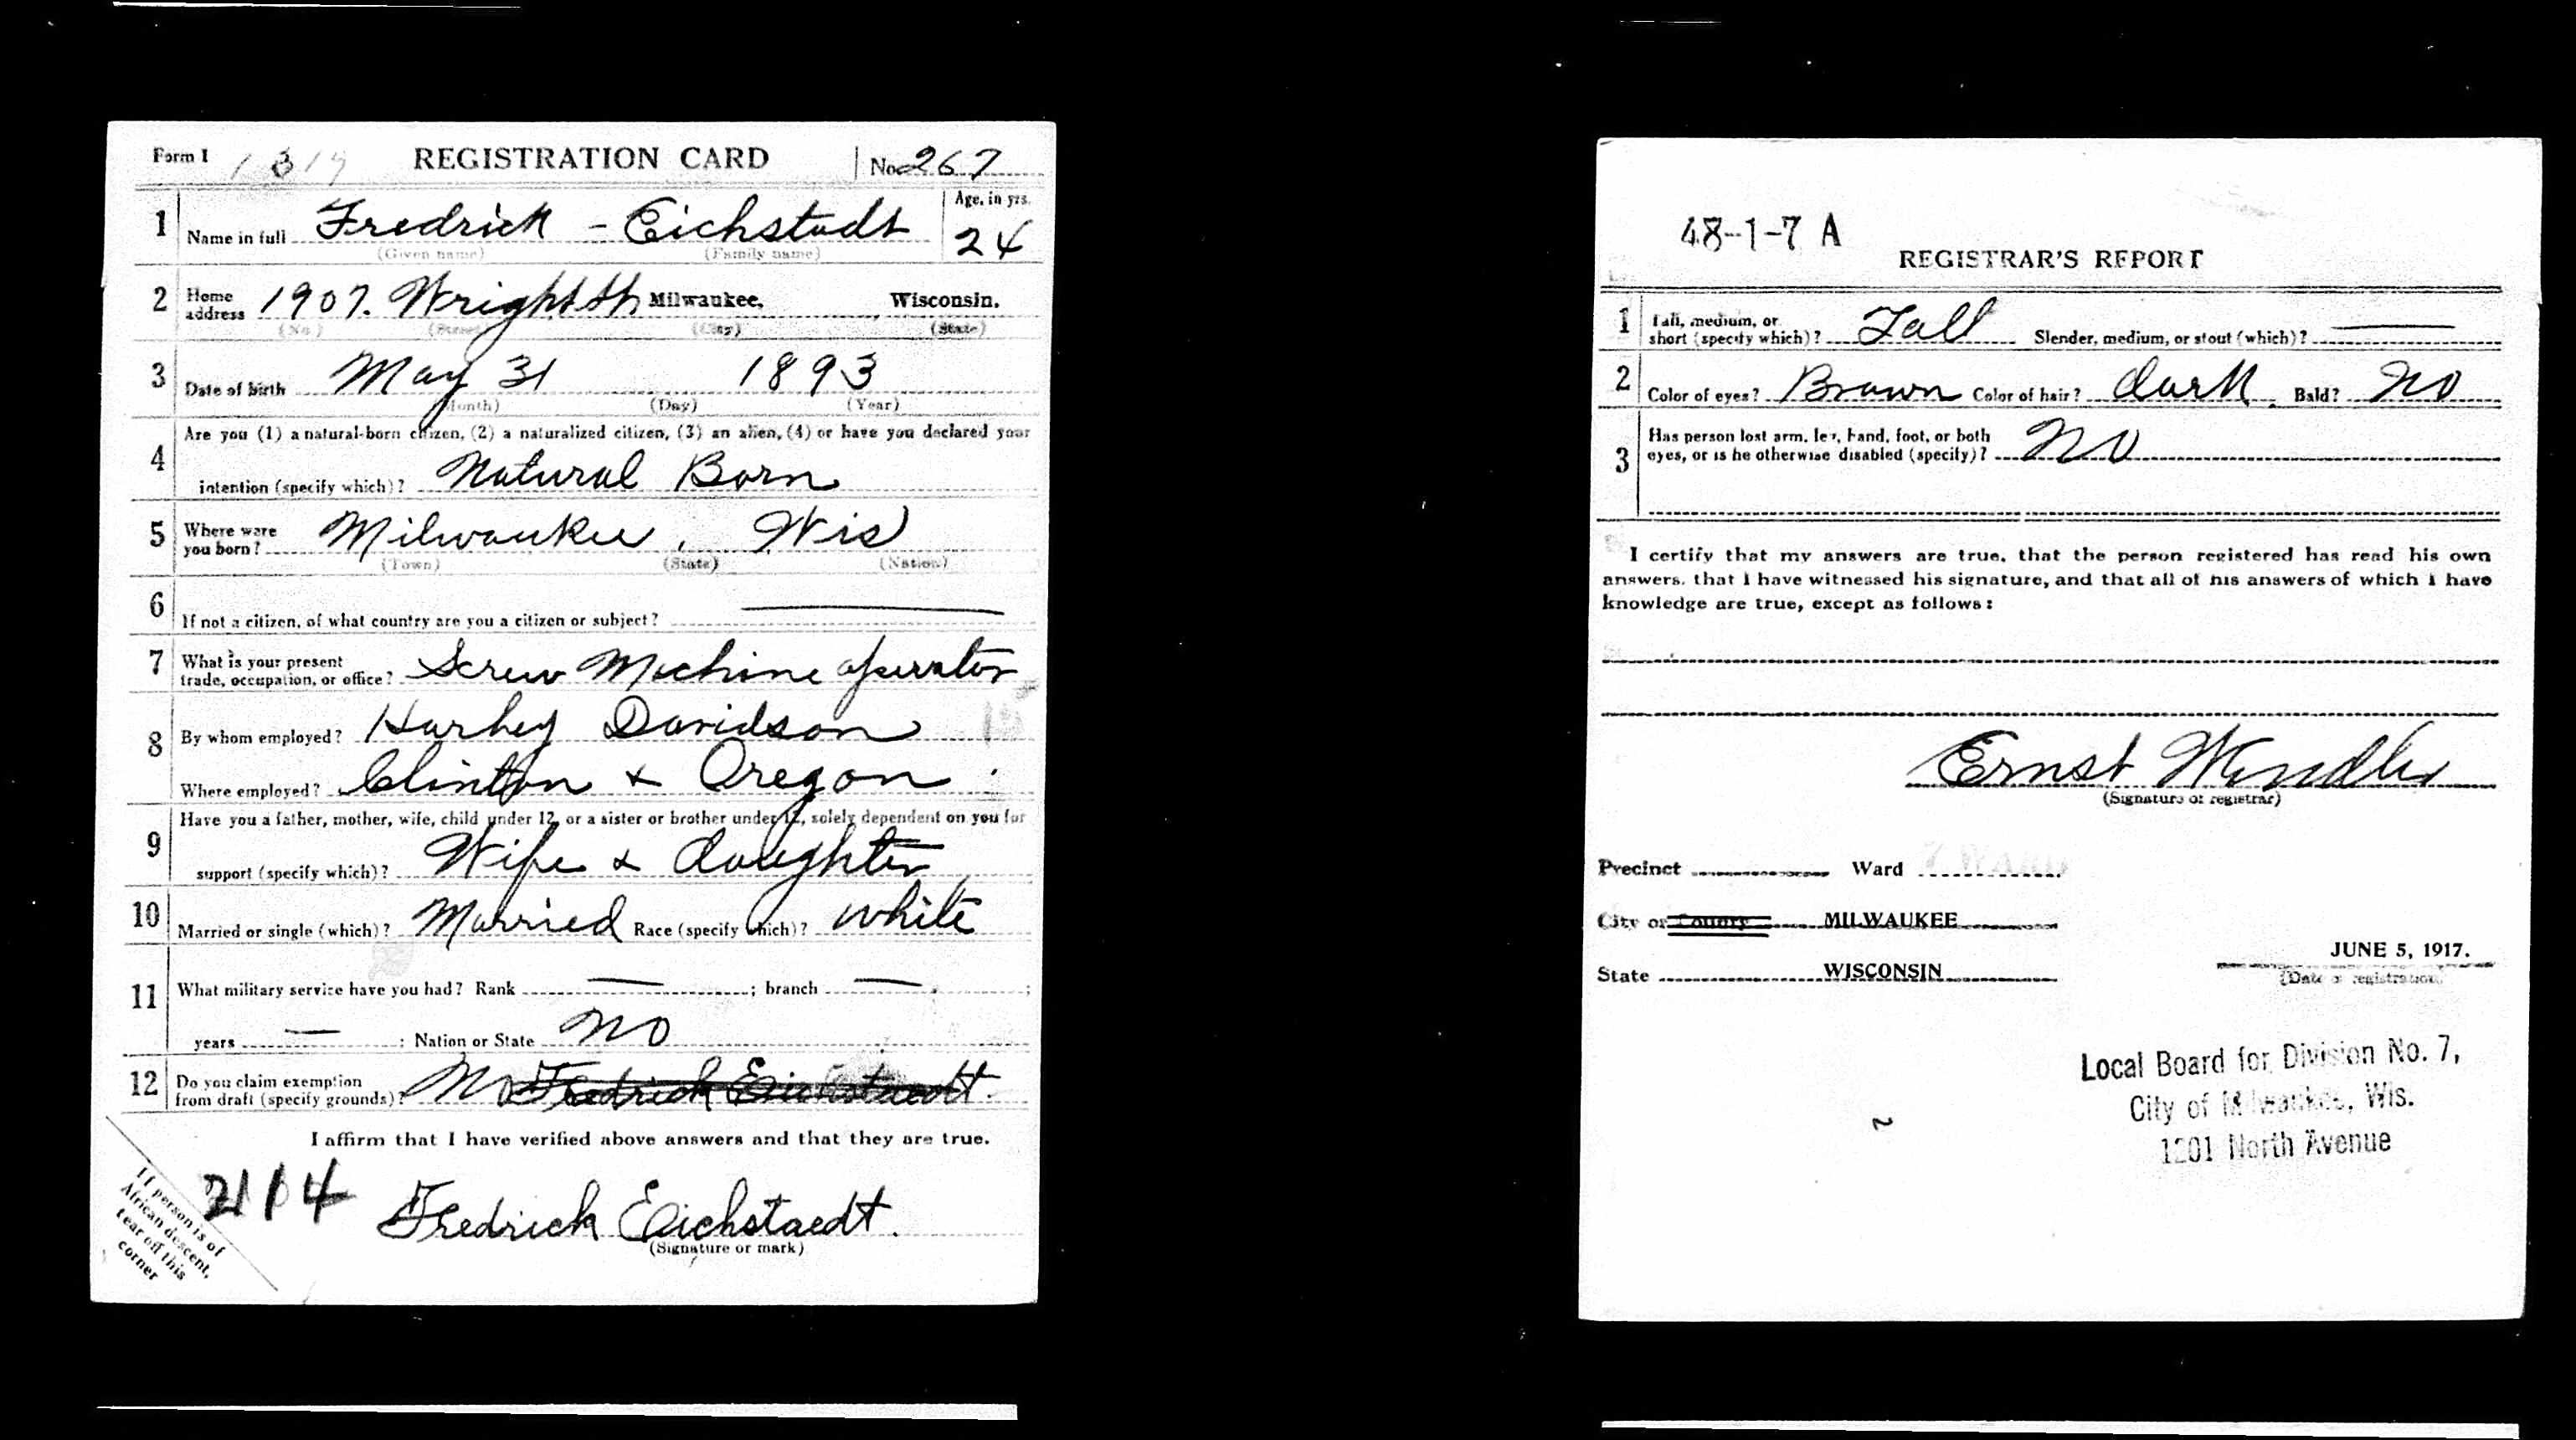 Form 1 1319 REGISTRATION CARD No 267
1 Name in full Fredrick - Eichstadt Age, in yrs. 24
(Given name) (Family name)
2 Home address 1907. Wright St Milwaukee, Wisconsin.
(No.) (Street) (City) (State)
3 Date of birth May 31 1893
(Month) (Day) (Year)
4 Are you (1) a natural-born citizen, (2) a naturalized citizen, (3) an alien, (4) or have you declared your
intention (specify which)? Natural Born
5 Where were you born? Milwaukee, Wis
(Town) (State) (Nation)
6 If not a citizen, of what country are you a citizen or subject?
7 What is your present trade, occupation, or office? Screw Machine operator
8 By whom employed? Harley Davidson
Where employed? Clinton & Oregon
9 Have you a father, mother, wife, child under 12, or a sister or brother under 12, solely dependent on you for
support (specify which)? Wife & daughter
10 Married or single (which)? Married Race (specify which)? White
11 What military service have you had? Rank — ; branch — ;
years — ; Nation or State No
12 Do you claim exemption from draft (specify grounds)? No Fredrick Eichstaedt.
I affirm that I have verified above answers and that they are true.
2114
Fredrick Eichstaedt.
(Signature or mark)
If person is of
African descent,
tear off this
corner
48-1-7 A
REGISTRAR'S REPORT
1 Tall, medium, or short (specify which)? Tall Slender, medium, or stout (which)? —
2 Color of eyes? Brown Color of hair? dark Bald? No
3 Has person lost arm, leg, hand, foot, or both eyes, or is he otherwise disabled (specify)? No
I certify that my answers are true, that the person registered has read his own
answers, that I have witnessed his signature, and that all of his answers of which I have
knowledge are true, except as follows:
Ernst Windler
(Signature of registrar)
Precinct Ward 7 WARD
City or County MILWAUKEE
State WISCONSIN
JUNE 5, 1917.
(Date of registration)
Local Board for Division No. 7,
City of Milwaukee, Wis.
1201 North Avenue
2